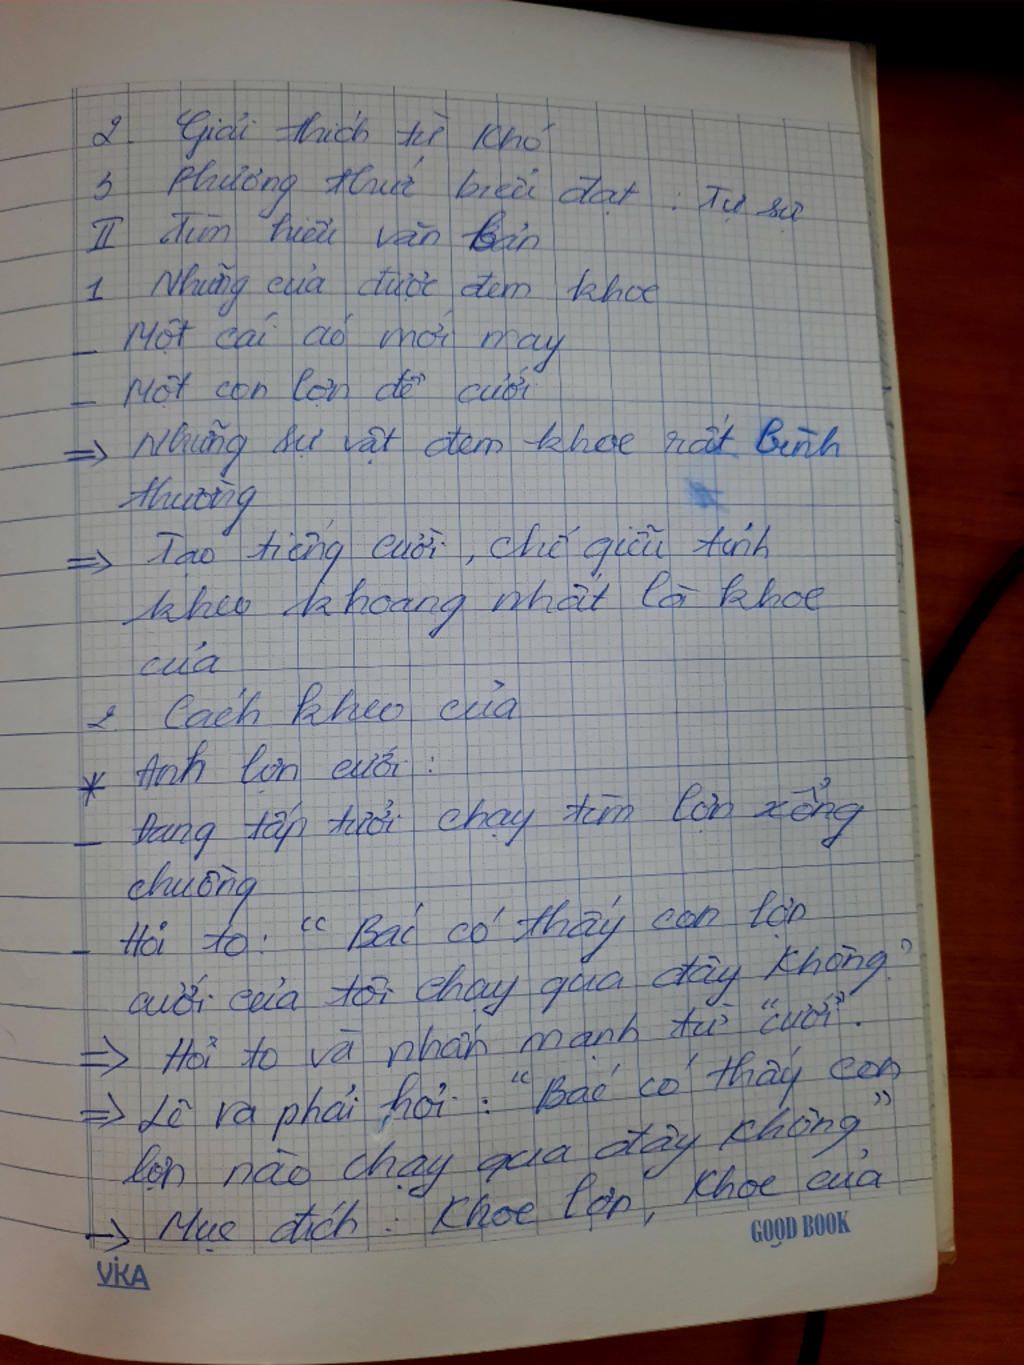 2. Giải thích từ khó
3 Phương thức biểu đạt : Tự sự
II Tìm hiểu văn bản
1 Những của được đem khoe
- Một cái áo mới may
- Một con lợn để cưới
=> Những sự vật đem khoe rất bình
thường
=> Tạo tiếng cười, chế giễu tính
kheo khoang nhất là khoe
của
2 Cách kheo của
* Anh lợn cưới :
- Đang tấp tưởi chạy tìm lợn xổng
chuồng
- Hỏi to: "Bác có thấy con lợn
cưới của tôi chạy qua đây không?
=> Hỏi to và nhấn mạnh từ "cưới".
=> Lẽ ra phải hỏi : "Bác có thấy con
lợn nào chạy qua đây không"
-> Mục đích : Khoe lợn, khoe của
GOOD BOOK
ViKA